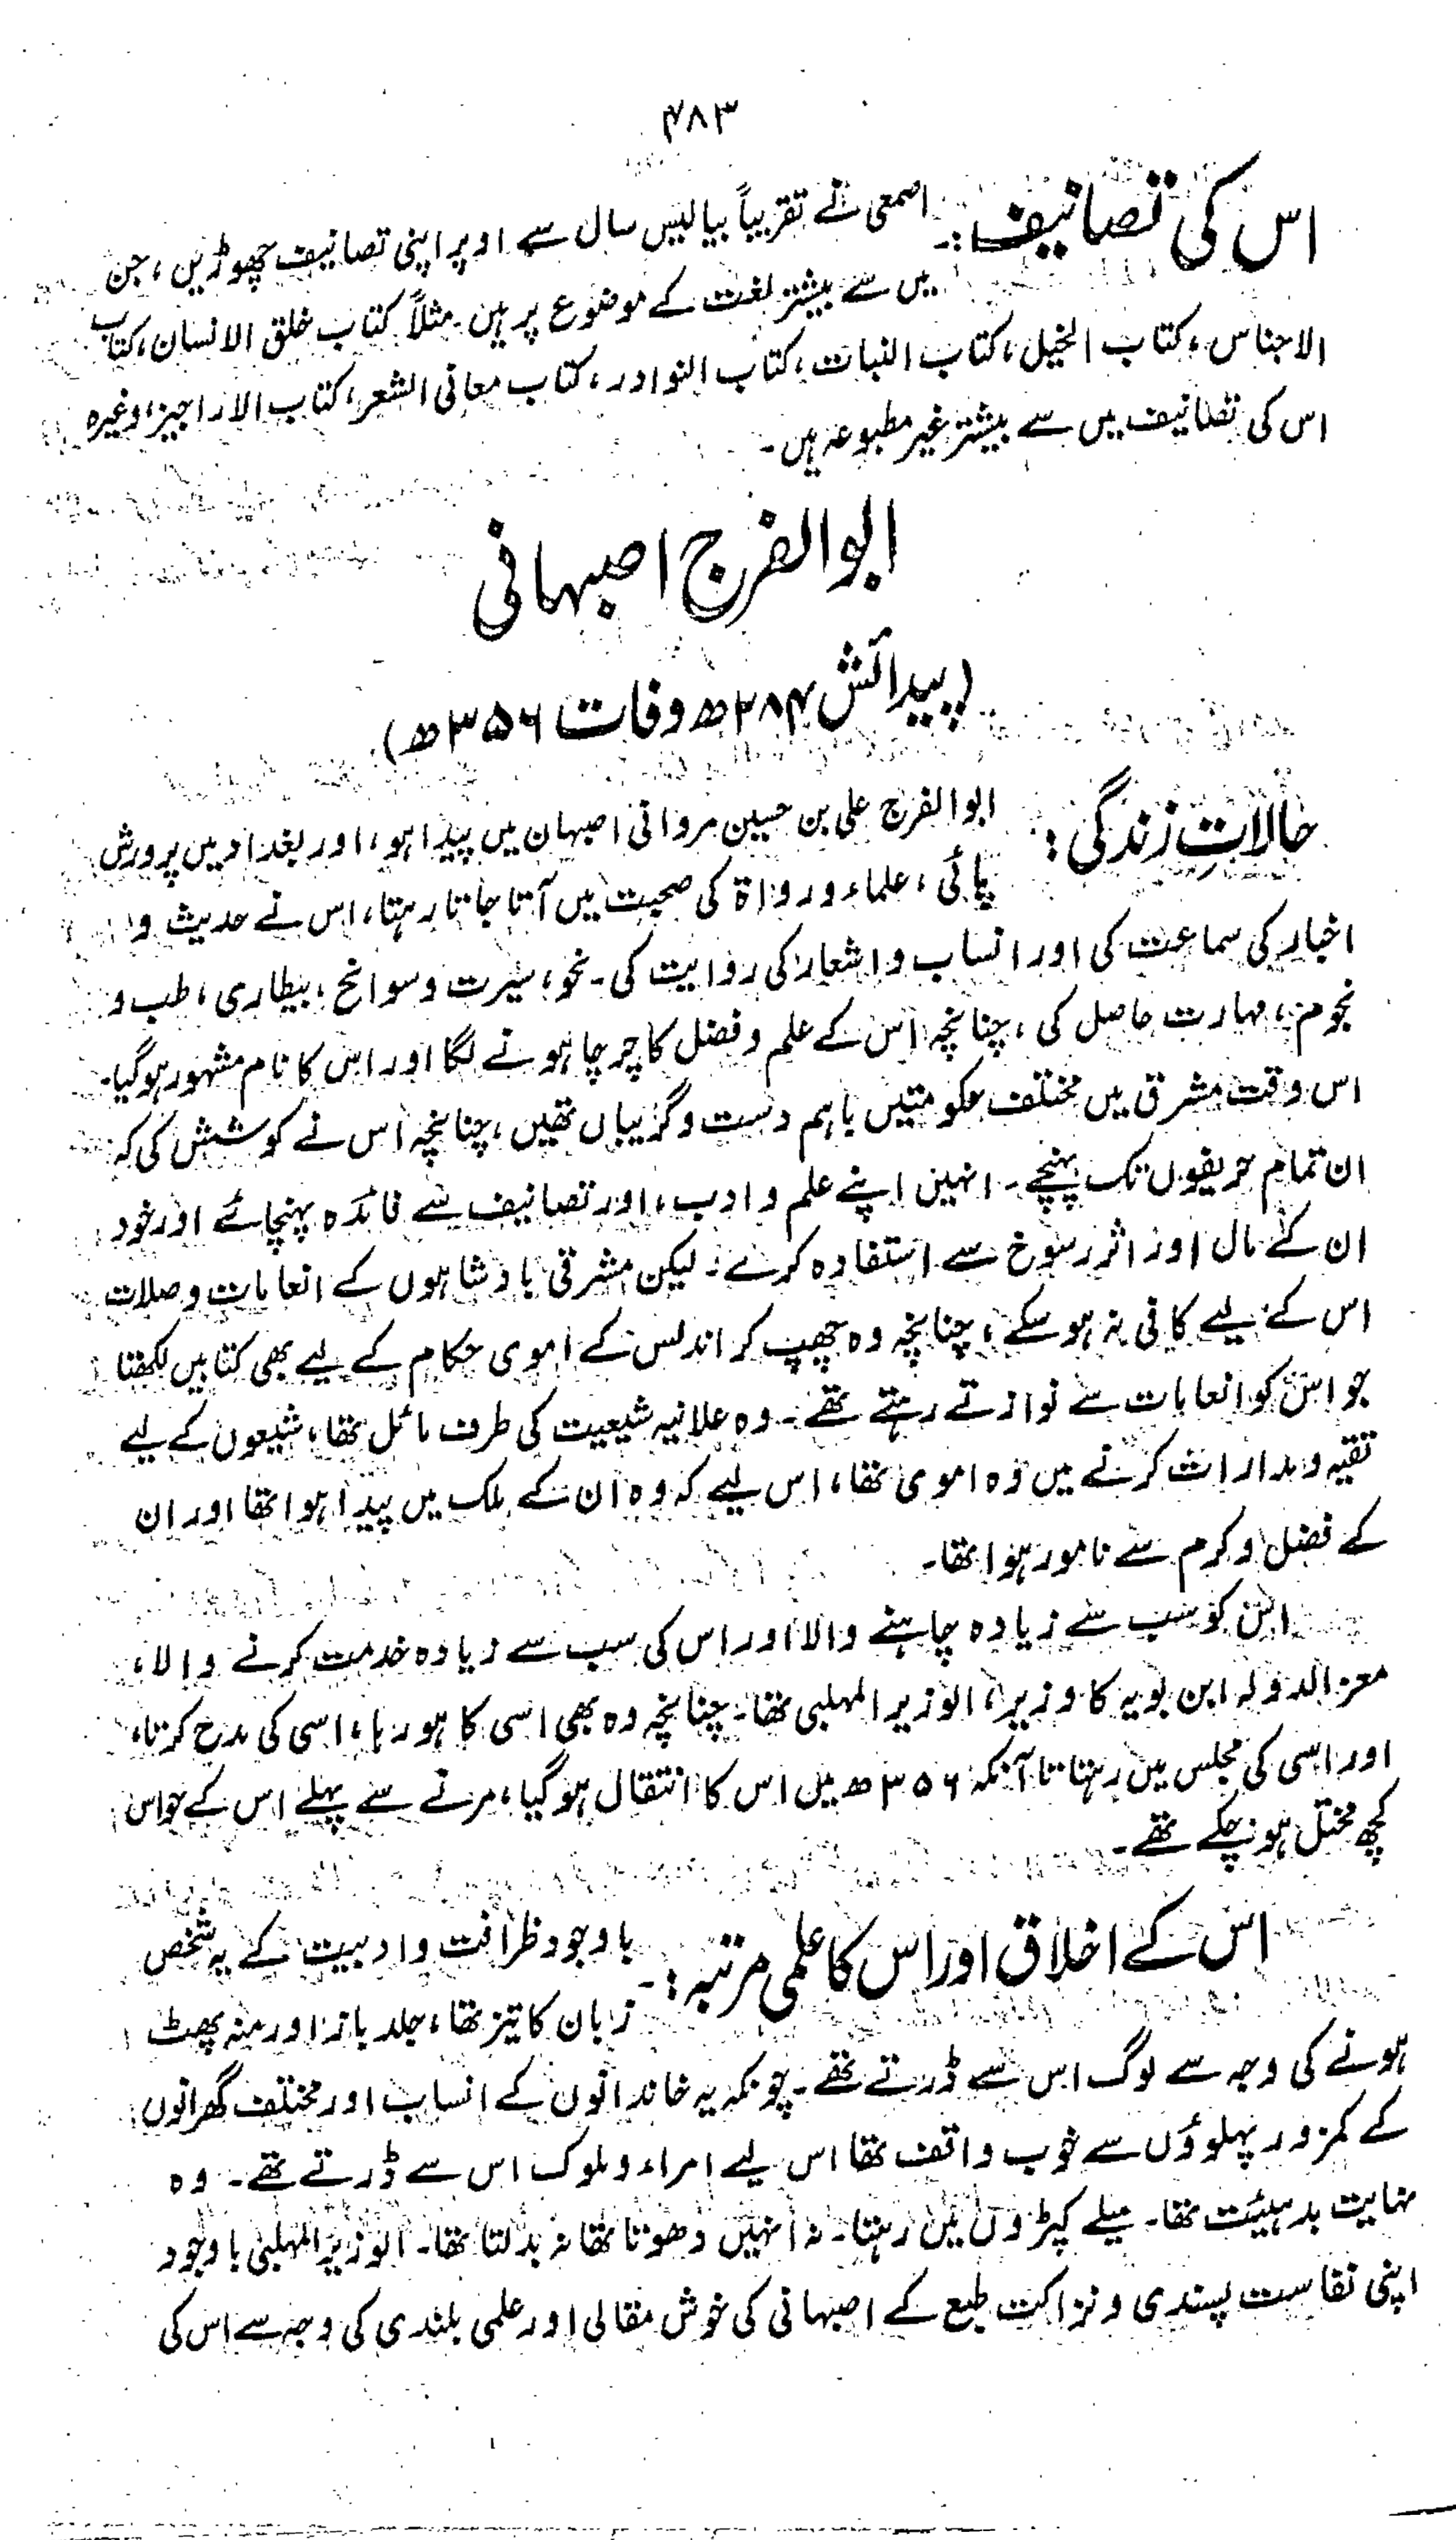 ۴۸۳
اس کی تصانیف:۔ اصمعی نے تقریباً بیالیس سال سے اوپر اپنی تصانیف چھوڑیں، جن
میں سے بیشتر لغت کے موضوع پر ہیں۔ مثلاً کتاب خلق الانسان، کتاب
الاجناس، کتاب الخیل، کتاب النبات، کتاب النوادر، کتاب معانی الشعر، کتاب الاراجیز، وغیرہ
اس کی تصانیف میں سے بیشتر غیر مطبوعہ ہیں۔
ابوالفرج اصبہانی
(پیدائش ۲۸۴ھ وفات ۳۵۶ھ)
حالاتِ زندگی: ابوالفرج علی بن حسین مروانی اصبہان میں پیدا ہو، اور بغداد میں پرورش
پائی، علماء و رواۃ کی صحبت میں آتا جاتا رہتا، اس نے حدیث و
اخبار کی سماعت کی اور انساب و اشعار کی روایت کی۔ نحو، سیرت و سوانح، بیطاری، طب و
نجوم، مہارت حاصل کی، چنانچہ اس کے علم و فضل کا چرچا ہونے لگا اور اس کا نام مشہور ہوگیا۔
اس وقت مشرق میں مختلف حکومتیں باہم دست و گریباں تھیں، چنانچہ اس نے کوشش کی کہ
ان تمام حریفوں تک پہنچے۔ انہیں اپنے علم و ادب، اور تصانیف سے فائدہ پہنچائے اور خود
ان کے مال اور اثر رسوخ سے استفادہ کرے۔ لیکن مشرقی بادشاہوں کے انعامات و صلات
اس کے لیے کافی نہ ہو سکے، چنانچہ وہ چھپ کر اندلس کے اموی حکام کے لیے بھی کتابیں لکھتا
جو اس کو انعامات سے نوازتے رہتے تھے۔ وہ علانیہ شیعیت کی طرف مائل تھا، شیعوں کے لیے
تقیہ و مدارات کرنے میں وہ اموی تھا، اس لیے کہ وہ ان کے ملک میں پیدا ہوا تھا اور ان
کے فضل و کرم سے نامور ہوا تھا۔
اس کو سب سے زیادہ چاہنے والا اور اس کی سب سے زیادہ خدمت کرنے والا،
معز الدولہ ابن بویہ کا وزیر، الوزیر المہلبی تھا۔ چنانچہ وہ بھی اسی کا ہو رہا، اسی کی مدح کرتا،
اور اسی کی مجلس میں رہتا تا آنکہ ۳۵۶ھ میں اس کا انتقال ہو گیا، مرنے سے پہلے اس کے حواس
کچھ مختل ہو چکے تھے۔
اس کے اخلاق اور اس کا علمی مرتبہ:۔ باوجود ظرافت و ادبیت کے یہ شخص
زبان کا تیز تھا، جلد باز اور منہ پھٹ
ہونے کی وجہ سے لوگ اس سے ڈرتے تھے۔ چونکہ یہ خاندانوں کے انساب اور مختلف گھرانوں
کے کمزور پہلوؤں سے خوب واقف تھا اس لیے امراء و ملوک اس سے ڈرتے تھے۔ وہ
نہایت بدہیئت تھا۔ میلے کپڑوں میں رہتا۔ نہ انہیں دھوتا تھا نہ بدلتا تھا۔ الوزیر المہلبی باوجود
اپنی نفاست پسندی و نزاکت طبع کے اصبہانی کی خوش مقالی اور علمی بلندی کی وجہ سے اس کی